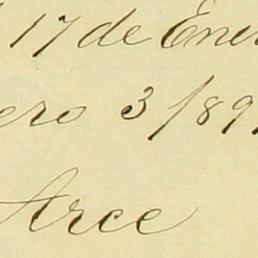 17 de Ene
ero 3/89
Arce